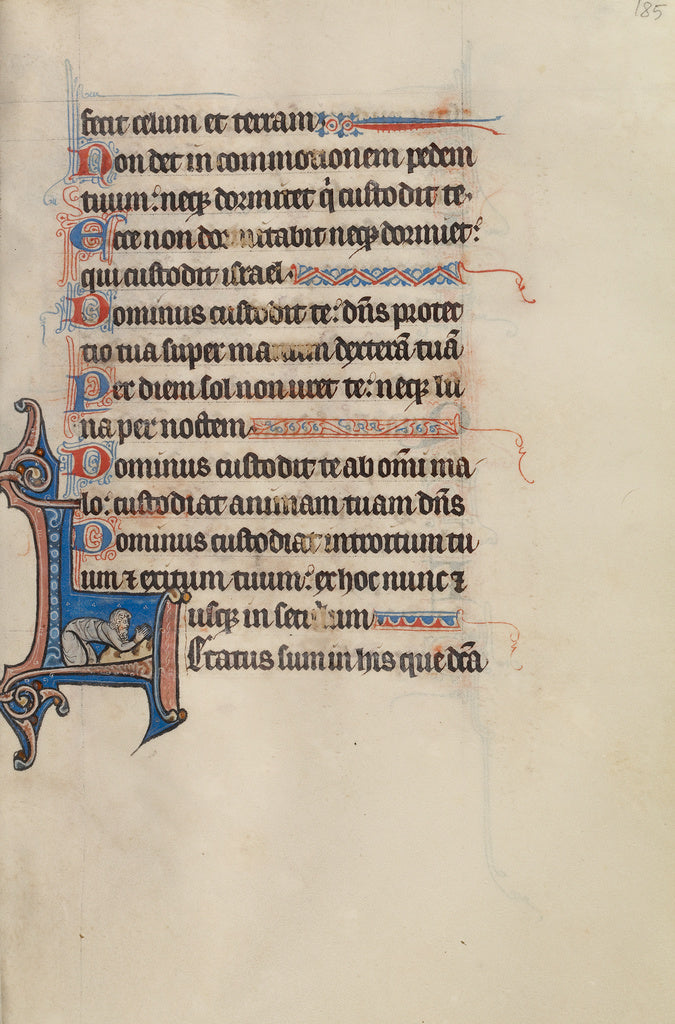 185
fecit celum et terram
Non det in commotionem pedem
tuum: neqꝫ dormitet q̇ custodit te.
Ecce non dormitabit neqꝫ dormiet:
qui custodit israel.
Dominus custodit te: dñs protec
tio tua super manum dexterā tuā
Per diem sol non uret te: neqꝫ lu
na per noctem.
Dominus custodit te ab om̄i ma
lo: custodiat animam tuam dñs
Dominus custodiat introitum tu
um ⁊ exitum tuum: ex hoc nunc ⁊
usqꝫ in seculum
Letatus sum in his que dc̄a